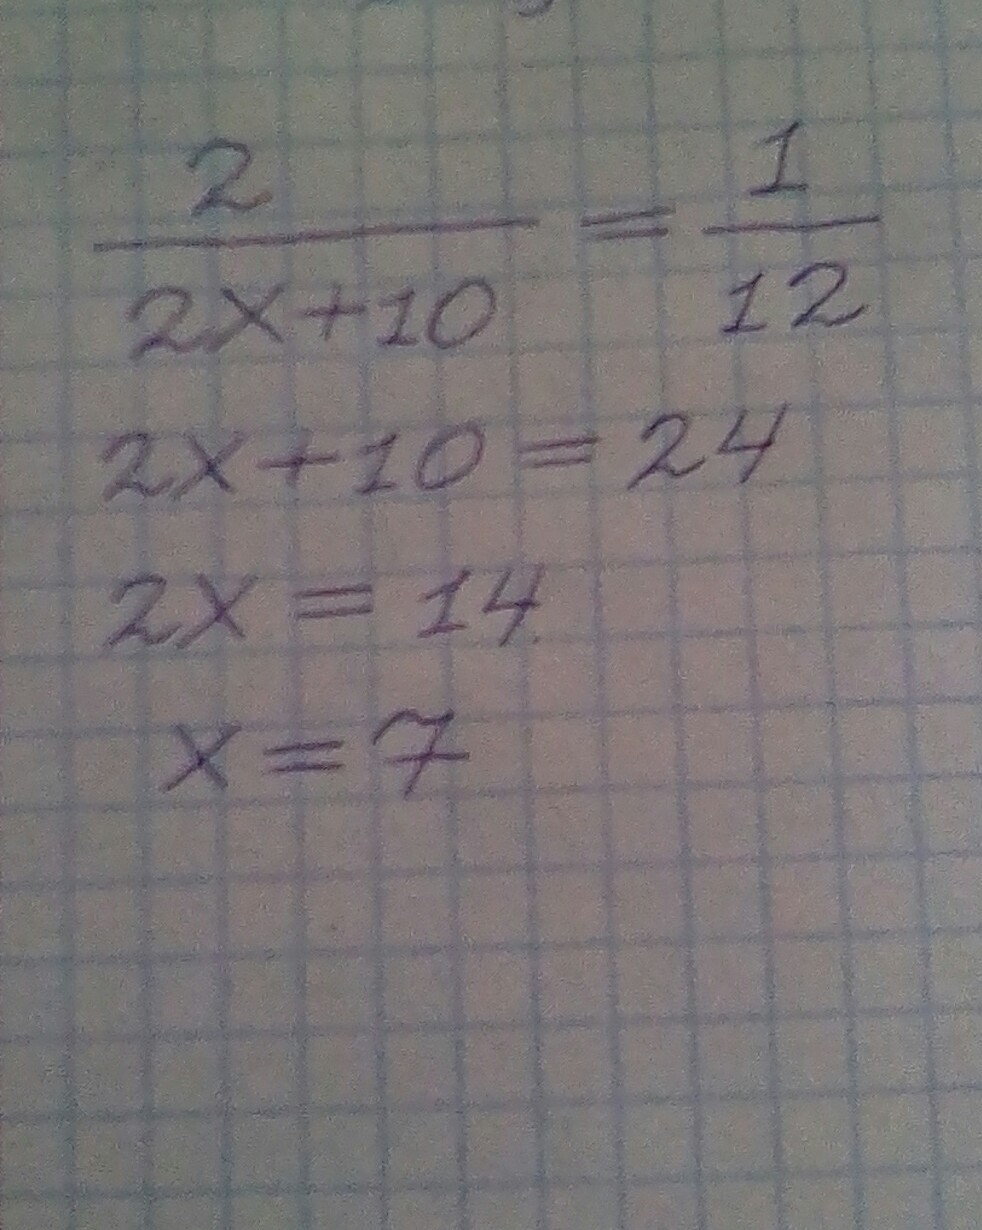 2/(2x+10) = 1/12
2x+10=24
2x=14
x=7